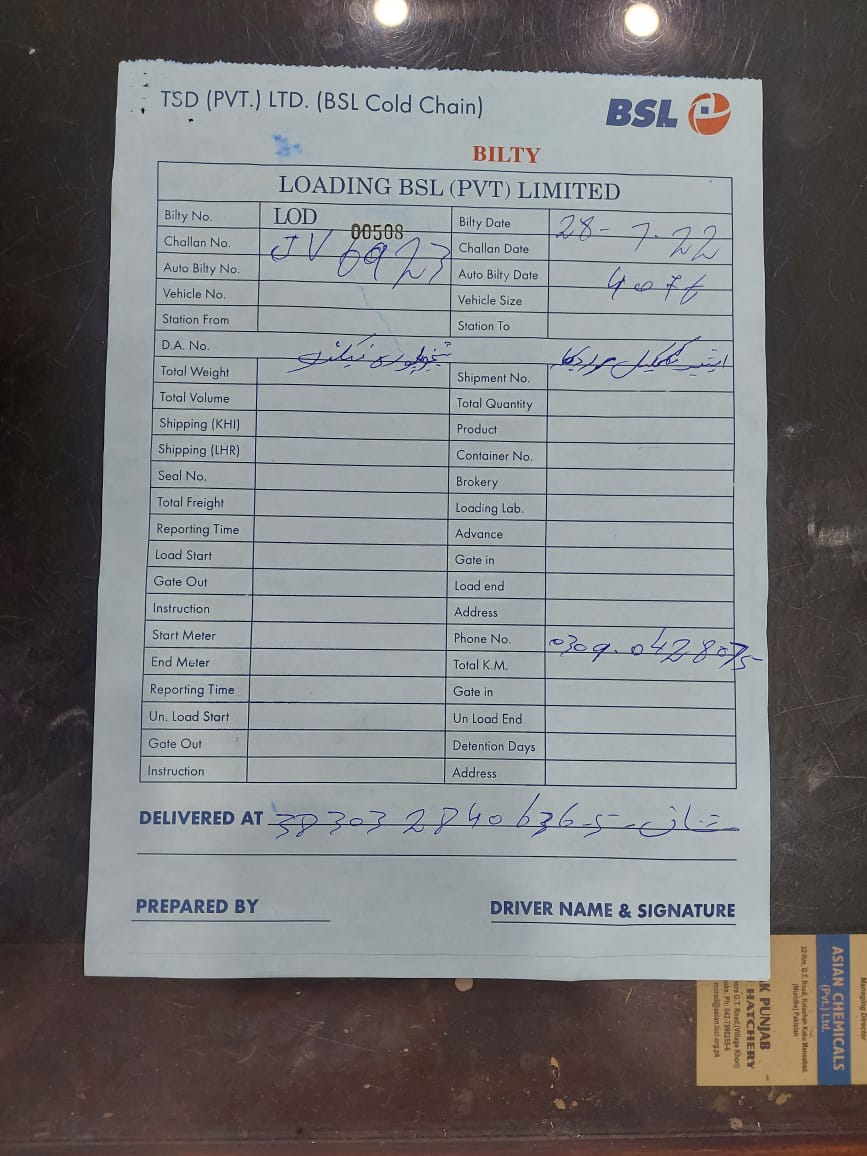 TSD (PVT.) LTD. (BSL Cold Chain)
BSL
BILTY
LOADING BSL (PVT) LIMITED
Bilty No. LOD 00508 Bilty Date 28-7-22
Challan No. JV 6923 Challan Date
Auto Bilty No. Auto Bilty Date 4076
Vehicle No. Vehicle Size
Station From Station To
D.A. No.
Total Weight Shipment No.
Total Volume Total Quantity
Shipping (KHI) Product
Shipping (LHR) Container No.
Seal No. Brokery
Total Freight Loading Lab.
Reporting Time Advance
Load Start Gate in
Gate Out Load end
Instruction Address
Start Meter Phone No. 0309.0428075
End Meter Total K.M.
Reporting Time Gate in
Un. Load Start Un Load End
Gate Out Detention Days
Instruction Address
DELIVERED AT 38303 2840636-5
PREPARED BY DRIVER NAME & SIGNATURE
Managing Director
ASIAN CHEMICALS
(Pvt.) Ltd.
K PUNJAB
HATCHERY